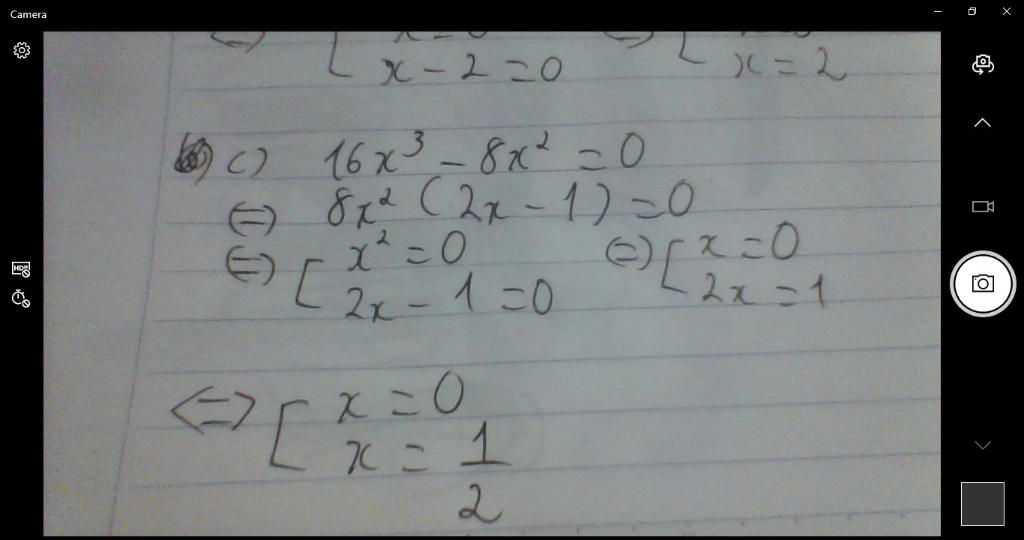 Camera
x - 2 = 0 x = 2
c) 16x³ - 8x² = 0
⇔ 8x² (2x - 1) = 0
⇔ [ x² = 0 ⇔ [ x = 0
2x - 1 = 0 2x = 1
⇔ [ x = 0
x = 1/2